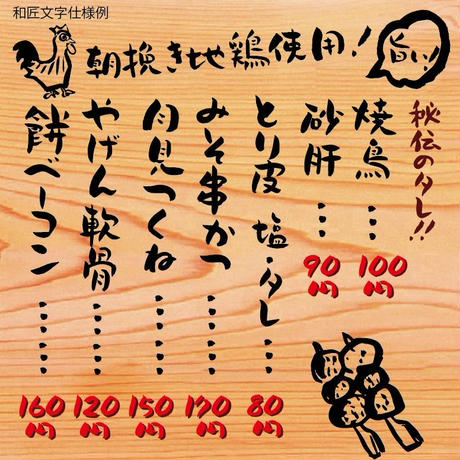 和匠文字仕様例
朝挽き地鶏使用!
旨い!
秘伝のタレ!!
焼鳥…100円
砂肝…90円
とり皮 塩・タレ…80円
みそ串かつ……170円
月見つくね……150円
やげん軟骨……120円
餅ベーコン……160円